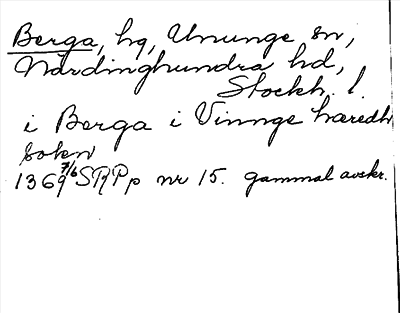 Berga, hg, Ununge sn,
Närdinghundra hd,
Stockh. l.
i Berga i Vinnge hæredh
sokn
1369 7/6 SRPp nr 15. gammal avskr.